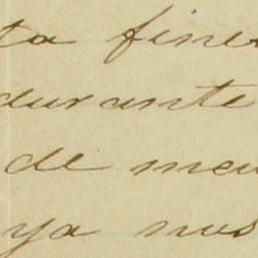 ta fine
durante
de meu
ya nus